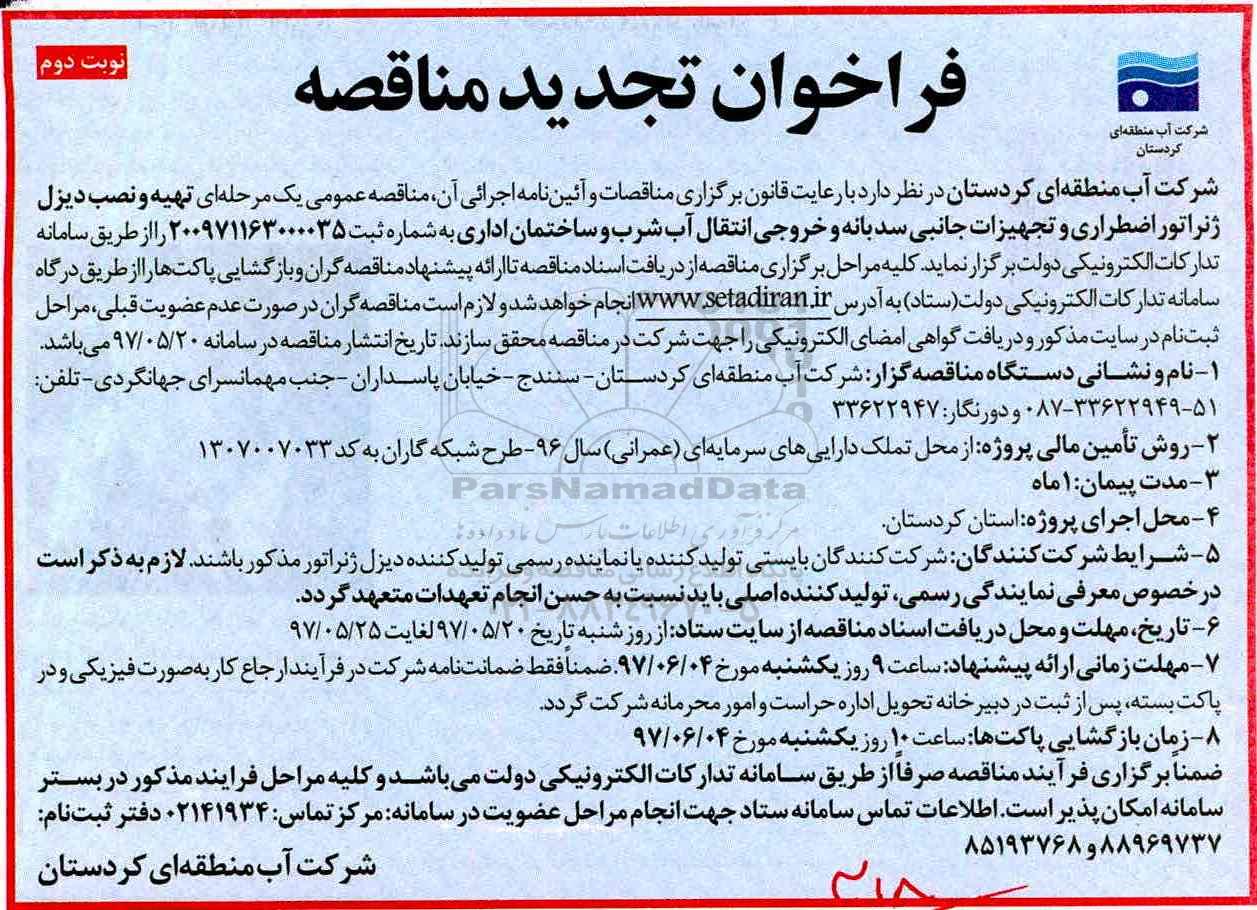 نوبت دوم
فراخوان تجدید مناقصه
شرکت آب منطقه‌ای
کردستان
شرکت آب منطقه‌ای کردستان در نظر دارد با رعایت قانون برگزاری مناقصات و آئین‌نامه اجرائی آن، مناقصه عمومی یک مرحله‌ای تهیه و نصب دیزل
ژنراتور اضطراری و تجهیزات جانبی سد بانه و خروجی انتقال آب شرب و ساختمان اداری به شماره ثبت ۲۰۰۹۷۱۱۶۳۰۰۰۰۳۵ را از طریق سامانه
تدارکات الکترونیکی دولت برگزار نماید. کلیه مراحل برگزاری مناقصه از دریافت اسناد مناقصه تا ارائه پیشنهاد مناقصه‌گران و بازگشایی پاکت‌ها را از طریق درگاه
سامانه تدارکات الکترونیکی دولت (ستاد) به آدرس www.setadiran.ir انجام خواهد شد و لازم است مناقصه‌گران در صورت عدم عضویت قبلی، مراحل
ثبت‌نام در سایت مذکور و دریافت گواهی امضای الکترونیکی را جهت شرکت در مناقصه محقق سازند. تاریخ انتشار مناقصه در سامانه ۹۷/۰۵/۲۰ می‌باشد.
۱- نام و نشانی دستگاه مناقصه‌گزار: شرکت آب منطقه‌ای کردستان - سنندج - خیابان پاسداران - جنب مهمانسرای جهانگردی - تلفن:
۵۱-۳۳۶۲۲۹۴۹-۰۸۷ و دورنگار: ۳۳۶۲۲۹۴۷
۲- روش تأمین مالی پروژه: از محل تملک دارایی‌های سرمایه‌ای (عمرانی) سال ۹۶- طرح شبکه گاران به کد ۱۳۰۷۰۰۷۰۳۳
۳- مدت پیمان: ۱ ماه
ParsNamadData
۴- محل اجرای پروژه: استان کردستان.
مرکز فرآوری اطلاعات پارس نماد داده‌ها
۵- شرایط شرکت‌کنندگان: شرکت‌کنندگان بایستی تولیدکننده یا نماینده رسمی تولیدکننده دیزل ژنراتور مذکور باشند. لازم به ذکر است
پایگاه اطلاع رسانی مناقصه و مزایده
در خصوص معرفی نمایندگی رسمی، تولیدکننده اصلی باید نسبت به حسن انجام تعهدات متعهد گردد.
۰۲۱-۸۸۳۴۹۶۷۰-۵
۶- تاریخ، مهلت و محل دریافت اسناد مناقصه از سایت ستاد: از روز شنبه تاریخ ۹۷/۰۵/۲۰ لغایت ۹۷/۰۵/۲۵
۷- مهلت زمانی ارائه پیشنهاد: ساعت ۹ روز یکشنبه مورخ ۹۷/۰۶/۰۴. ضمناً فقط ضمانت‌نامه شرکت در فرآیند ارجاع کار به صورت فیزیکی و در
پاکت بسته، پس از ثبت در دبیرخانه تحویل اداره حراست و امور محرمانه شرکت گردد.
۸- زمان بازگشایی پاکت‌ها: ساعت ۱۰ روز یکشنبه مورخ ۹۷/۰۶/۰۴
ضمناً برگزاری فرآیند مناقصه صرفاً از طریق سامانه تدارکات الکترونیکی دولت می‌باشد و کلیه مراحل فرایند مذکور در بستر
سامانه امکان‌پذیر است. اطلاعات تماس سامانه ستاد جهت انجام مراحل عضویت در سامانه: مرکز تماس: ۰۲۱۴۱۹۳۴ دفتر ثبت‌نام:
۸۸۹۶۹۷۳۷ و ۸۵۱۹۳۷۶۸
شرکت آب منطقه‌ای کردستان